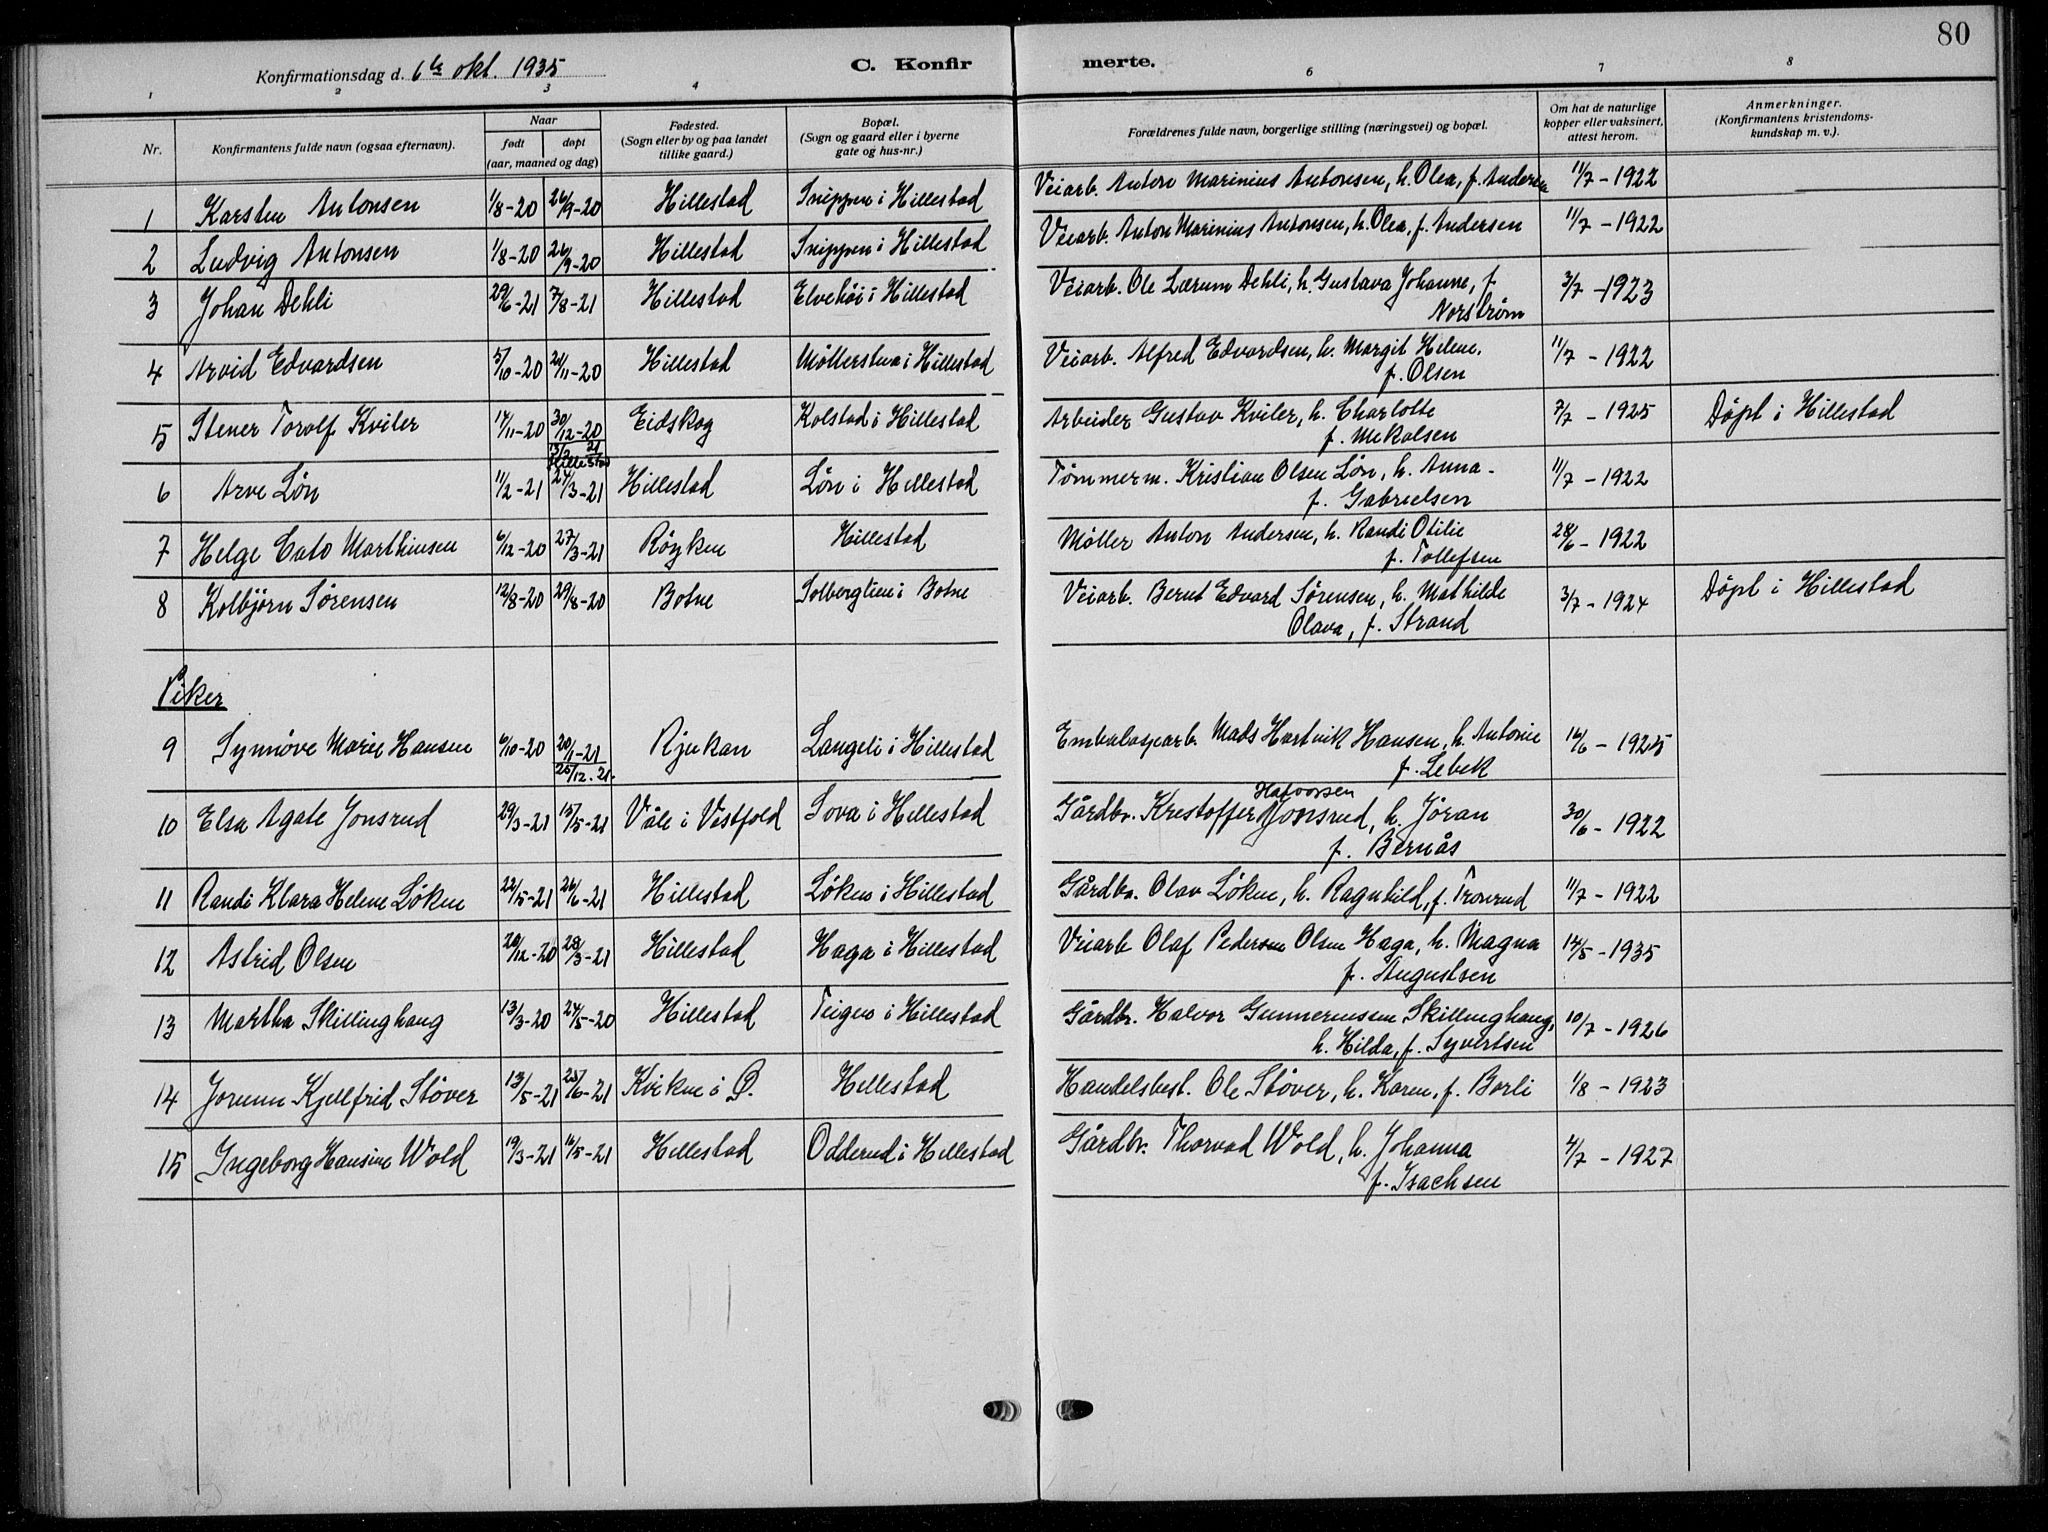 80
Konfirmationsdag d. 6te okt. 1935 C. Konfirmerte.
1 2 3 4 6 7 8
Nr. Konfirmantens fulde navn (ogsaa efternavn). Naar født døpt (aar, maaned og dag) Fødested. (Sogn eller by og paa landet tillike gaard.) Bopæl. (Sogn og gaard eller i byerne gate og hus-nr.) Forældrenes fulde navn, borgerlige stilling (næringsvei) og bopæl. Om hat de naturlige kopper eller vaksinert, attest herom. Anmerkninger. (Konfirmantens kristendoms-kundskap m. v.).
1 Karsten Antonsen 1/8-20 26/9-20 Hillestad Snippen i Hillestad Veiarb. Anton Marinius Antonsen, h. Olea, f. Andersen 11/7-1922
2 Ludvig Antonsen 1/8-20 26/9-20 Hillestad Snippen i Hillestad Veiarb. Anton Marinius Antonsen, h. Olea, f. Andersen 11/7-1922
3 Johan Dehli 29/6-21 7/8-21 Hillestad Elvehöi i Hillestad Veiarb. Ole Lærum Dehli, h. Gustava Johanne, f.
Norström 3/7-1923
4 Arvid Edvardsen 5/10-20 21/11-20 Hillestad Møllerstua i Hillestad Veiarb. Alfred Edvardsen, h. Margit Helene,
f. Olsen 11/7-1922
5 Stener Torolf Kviler 17/11-20 30/12-20 Eidskog Kolstad i Hillestad Arbeider Gustav Kviler, h. Charlotte
13/2 21 Hillestad f. Mikalsen 7/7-1925 Döpt i Hillestad
6 Arve Lön 11/2-21 27/3-21 Hillestad Lön i Hillestad Tömmerm. Kristian Olsen Lön, h. Anna
f. Gabrielsen 11/7-1922
7 Helge Cato Marthinsen 6/12-20 27/3-21 Röyken Hillestad Möller Anton Andersen, h. Randi Otilie
f. Tollefsen 28/6-1922
8 Kolbjörn Sörensen 12/8-20 29/8-20 Botne Solberglien i Botne Veiarb. Bernt Edvard Sörensen, h. Mathilde
Olava, f. Strand 3/7-1924 Döpt i Hillestad
Piker
9 Synnöve Marie Hansen 6/10-20 20/1-21 Rjukan Langeli i Hillestad Embalagearb. Mads Hartvik Hansen, h. Antonie
25/12-21. f. Lebek 16/6-1925
10 Elsa Agate Jonsrud 29/3-21 15/5-21 Våle i Vestfold Sova i Hillestad Gårdbr. Krestoffer Halvorsen Jonsrud, h. Jöran
f. Bernås 30/6-1922
11 Randi Klara Helene Löken 22/5-21 26/6-21 Hillestad Löken i Hillestad Gårdbr. Olav Löken, h. Ragnhild, f. Tronrud 11/7-1922
12 Astrid Olsen 20/12-20 28/3-21 Hillestad Haga i Hillestad Veiarb Olaf Pedersen Olsen Haga, h. Magna
f. Augustsen 14/5-1935
13 Martha Skillinghaug 13/3-20 24/5-20 Hillestad Teigen i Hillestad Gårdbr. Halvor Gunneriusen Skillinghaug,
h. Hilda, f. Syvertsen 10/7-1926
14 Jorunn Kjellfrid Stöver 13/5-21 25/6-21 Kvikne i Ø. Hillestad Handelsbest. Ole Stöver, h. Karen, f. Borli 1/8-1923
15 Ingeborg Hansine Wold 19/3-21 16/5-21 Hillestad Odderud i Hillestad Gårdbr. Thorvad Wold, h. Johanna
f. Isachsen 4/7-1927